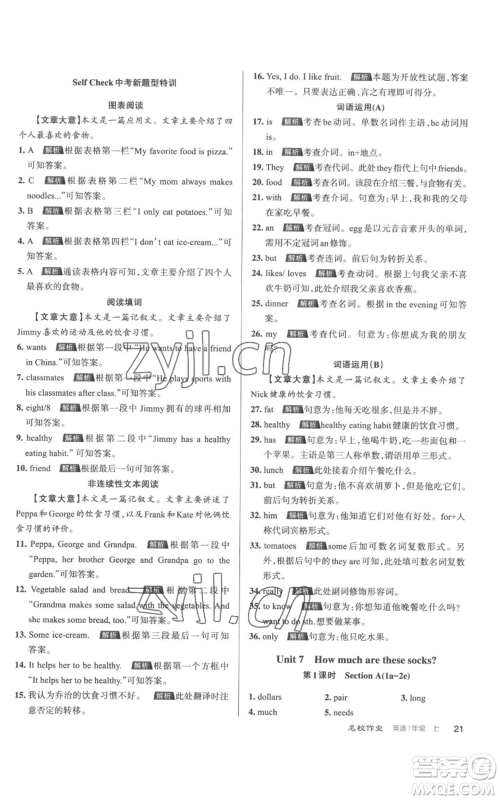 Self Check中考新题型特训
图表阅读
【文章大意】本文是一篇应用文。文章主要介绍了四
个人最喜欢的食物。
1. A 解析 根据表格第一栏“My favorite food is pizza.”
可知答案。
2. C 解析 根据表格第二栏“My mom always makes
noodles...”可知答案。
3. B 解析 根据表格第三栏“I only eat potatoes.”可
知答案。
4. A 解析 根据表格第四栏“I don't eat ice-cream...”
可知答案。
5. A 解析 通读表格内容可知，文章介绍了四个人
最喜欢的食物。
阅读填词
【文章大意】本文是一篇记叙文。文章主要介绍了
Jimmy喜欢的运动及他的饮食习惯。
6. wants 解析 根据第一段中“He wants to have a friend
in China.”可知答案。
7. classmates 解析 根据第一段中“He plays sports with
his classmates after class.”可知答案。
8. eight/8 解析 根据第一段中Jimmy拥有的球再相加
可知答案。
9. healthy 解析 根据第二段中“Jimmy has a healthy
eating habit.”可知答案。
10. friend 解析 根据最后一段可知答案。
非连续性文本阅读
【文章大意】本文是一篇记叙文。文章主要讲述了
Peppa和George的饮食习惯，以及Frank和Kate对他们饮
食习惯的评价。
11. Peppa, George and Grandma. 解析 根据第一段中
“Peppa, her brother George and Grandma go to
have breakfast.”可知答案。
12. Vegetable salad and bread. 解析 根据第二段中
“Grandma makes some salad with the vegetables. And
she makes some bread, too.”可知答案。
13. Some ice-cream. 解析 根据第三段最后一句可知
答案。
14. It helps her to be healthy. 解析 根据第一个方框中
“It helps you to be healthy.”可知答案。
15. 我认为乔治的饮食习惯不健康。 解析 此处翻译时注意
否定前移。
16. Yes, I do. I like fruit. 解析 本题为开放性试题，答案
不唯一。只要言之有理即可。
词语运用(A)
17. is 解析 考查be动词。单数名词作主语，be动词用
is。
18. in 解析 考查介词。in+地点。
19. They 解析 考查代词。此处they指代上句中friends。
20. food 解析 考查名词。该段在介绍三餐，与食物有关。
21. with 解析 考查介词。根据句意可知，我与父母在
家吃早餐。
22. an 解析 考查冠词。egg是以元音音素开头的单词，
需用不定冠词an修饰。
23. but 解析 考查连词。前后句为转折关系。
24. likes/ loves 解析 考查动词。根据上句中我父亲不喜
欢牛奶可知，我父亲喜欢香蕉。
25. dinner 解析 考查名词。根据in the evening可知答
案。
26. my 解析 考查代词。句意为：你是我的朋友
吗？
词语运用(B)
【文章大意】本文是一篇记叙文。文章主要介绍了
Nick健康的饮食习惯。
27. fat 解析 句意为：但是他不胖。
28. healthy 解析 healthy eating habit健康的饮食习惯。
29. an 解析 句意为：早上，他喝牛奶，吃一个面包和一
个苹果。apple以元音音素开头。
30. lunch 解析 此处在介绍午餐吃什么。
31. but 解析 句意为：他不喜欢胡萝卜，但是他吃它们。
前后句为转折关系。
32. him 解析 句意为：它们对他的健康有好处。for+人
称代词宾格形式。
33. tomatoes 解析 some后加可数名词复数形式或
不可数名词。
34. really 解析 此处副词修饰动词，用副词形式。
35. to know 解析 句意为：你想知道他晚餐吃什么吗？
want to do sth.想要做某事。
36. only 解析 句意为：他只吃水果。
Unit 7 How much are these socks?
第1课时 Section A(1a-2e)
1. dollars 2. pair 3. long
4. much 5. needs
名校作业 英语7年级 上 21
zyjl.cn
zyjl.cn